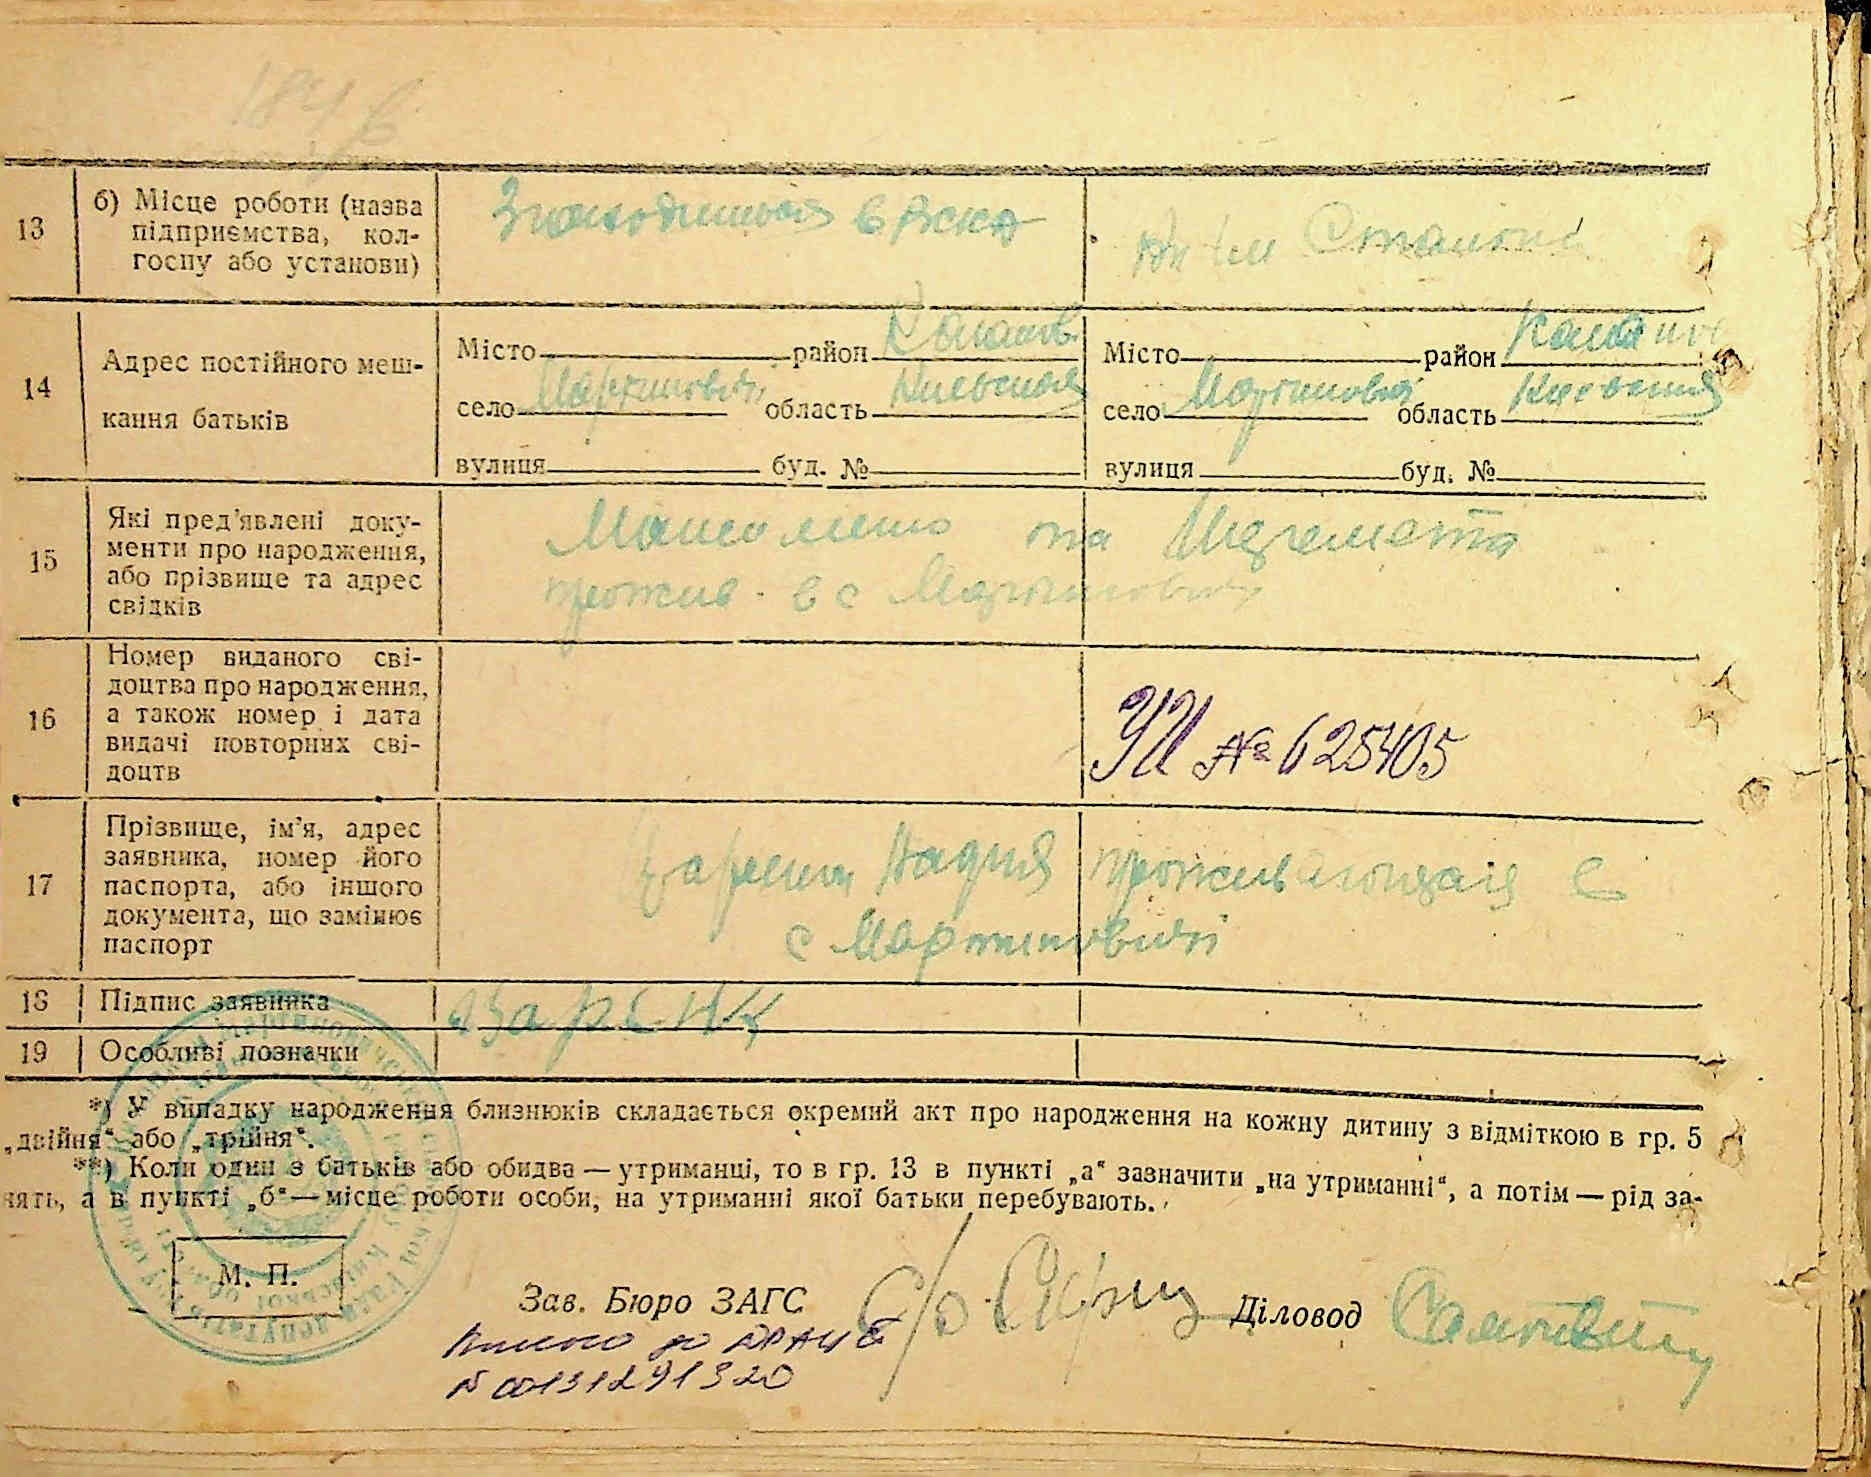 184 в
13
б) Місце роботи (назва
підприємства, кол-
госпу або установи)
Знаходиться в РСКА
ім Сталіна
14
Адрес постійного меш-
кання батьків
Місто район Канівс.
село Мартиновки область Киевская
вулиця буд. №
Місто район
село Мартиновкі область Киевская
вулиця буд. №
15
Які пред'явлені доку-
менти про народження,
або прізвище та адрес
свідків
та
прожив. в с Мартиновки
16
Номер виданого сві-
доцтва про народження,
а також номер і дата
видачі повторних сві-
доцтв
УИ № 625405
17
Прізвище, ім'я, адрес
заявника, номер його
паспорта, або іншого
документа, що замінює
паспорт
Надия проживающая в
с Мартиновкі
18 Підпис заявника
19 Особливі позначки
*) У випадку народження близнюків складається окремий акт про народження на кожну дитину з відміткою в гр. 5
„двійня“ або „трійня“.
**) Коли один з батьків або обидва — утриманці, то в гр. 13 в пункті „а“ зазначити „на утриманні“, а потім — рід за-
нять, а в пункті „б“ — місце роботи особи, на утриманні якої батьки перебувають.
М. П.
Зав. Бюро ЗАГС
Діловод
до ДРАЦС
№ 00131291320